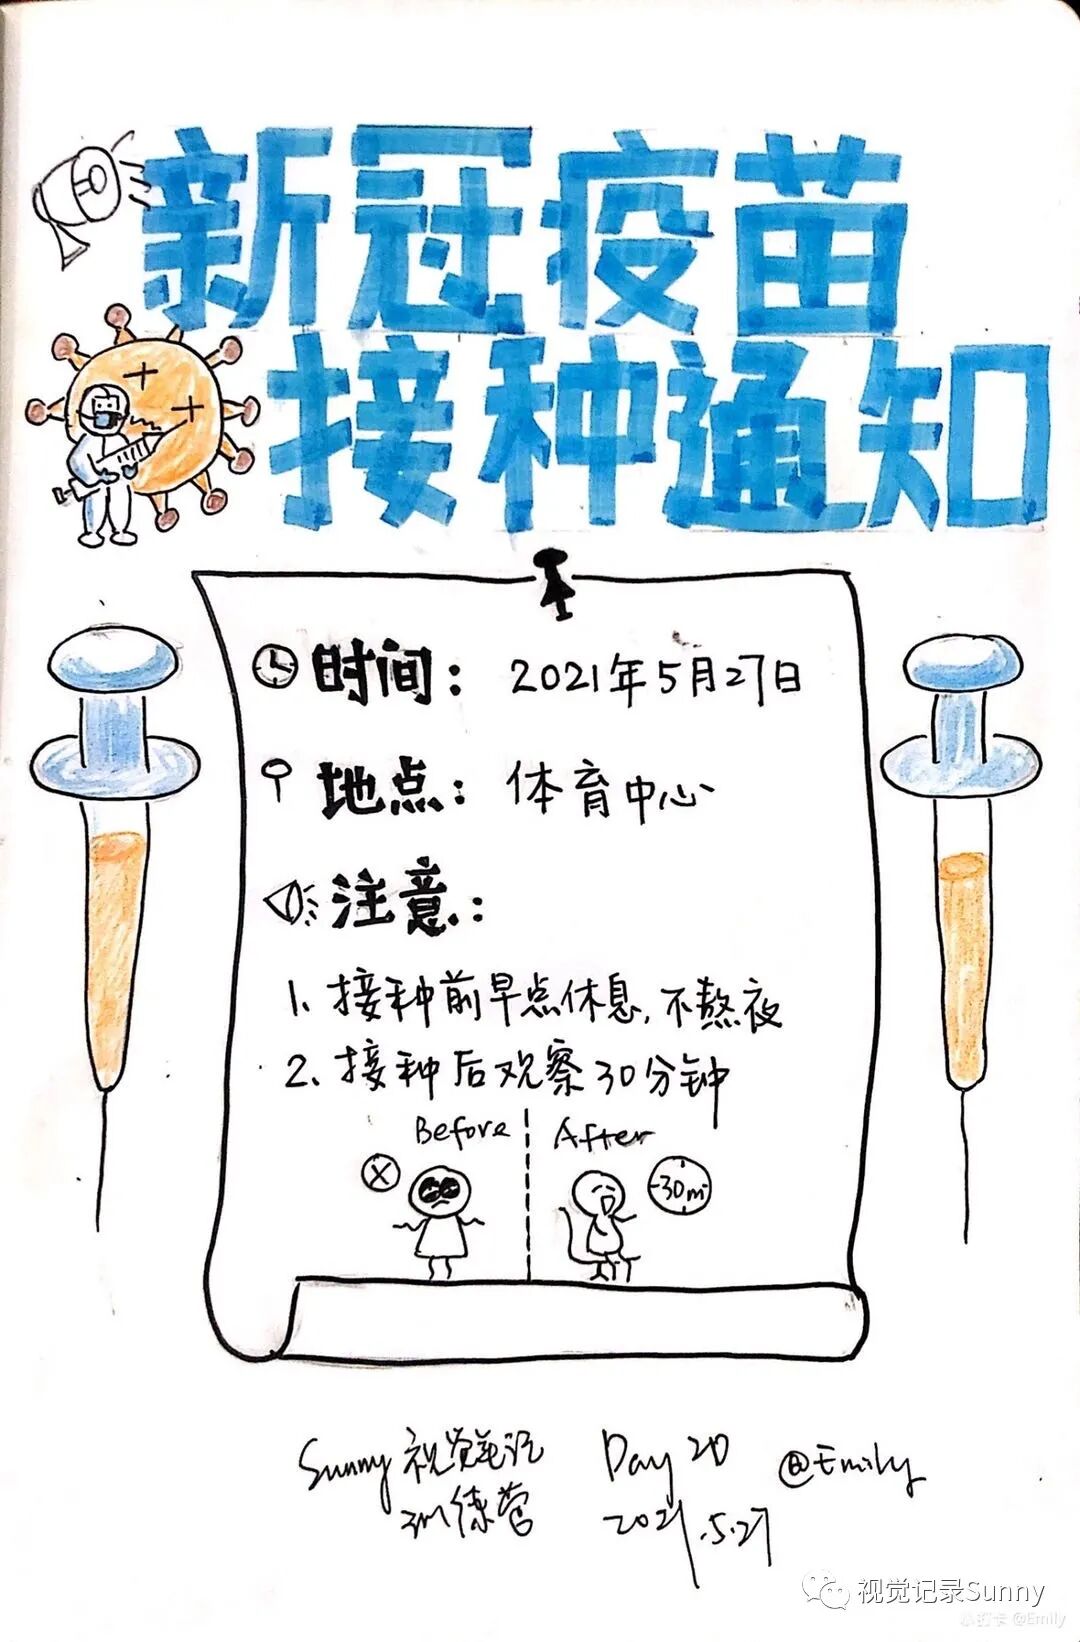 新冠疫苗
接种通知
时间：2021年5月27日
地点：体育中心
注意：
1. 接种前早点休息，不熬夜
2. 接种后观察30分钟
Before
After
X
30m
Sunny 视觉笔记 Day 20 @Emily
训练营 2021.5.27
视觉记录Sunny
小打卡 @Emily